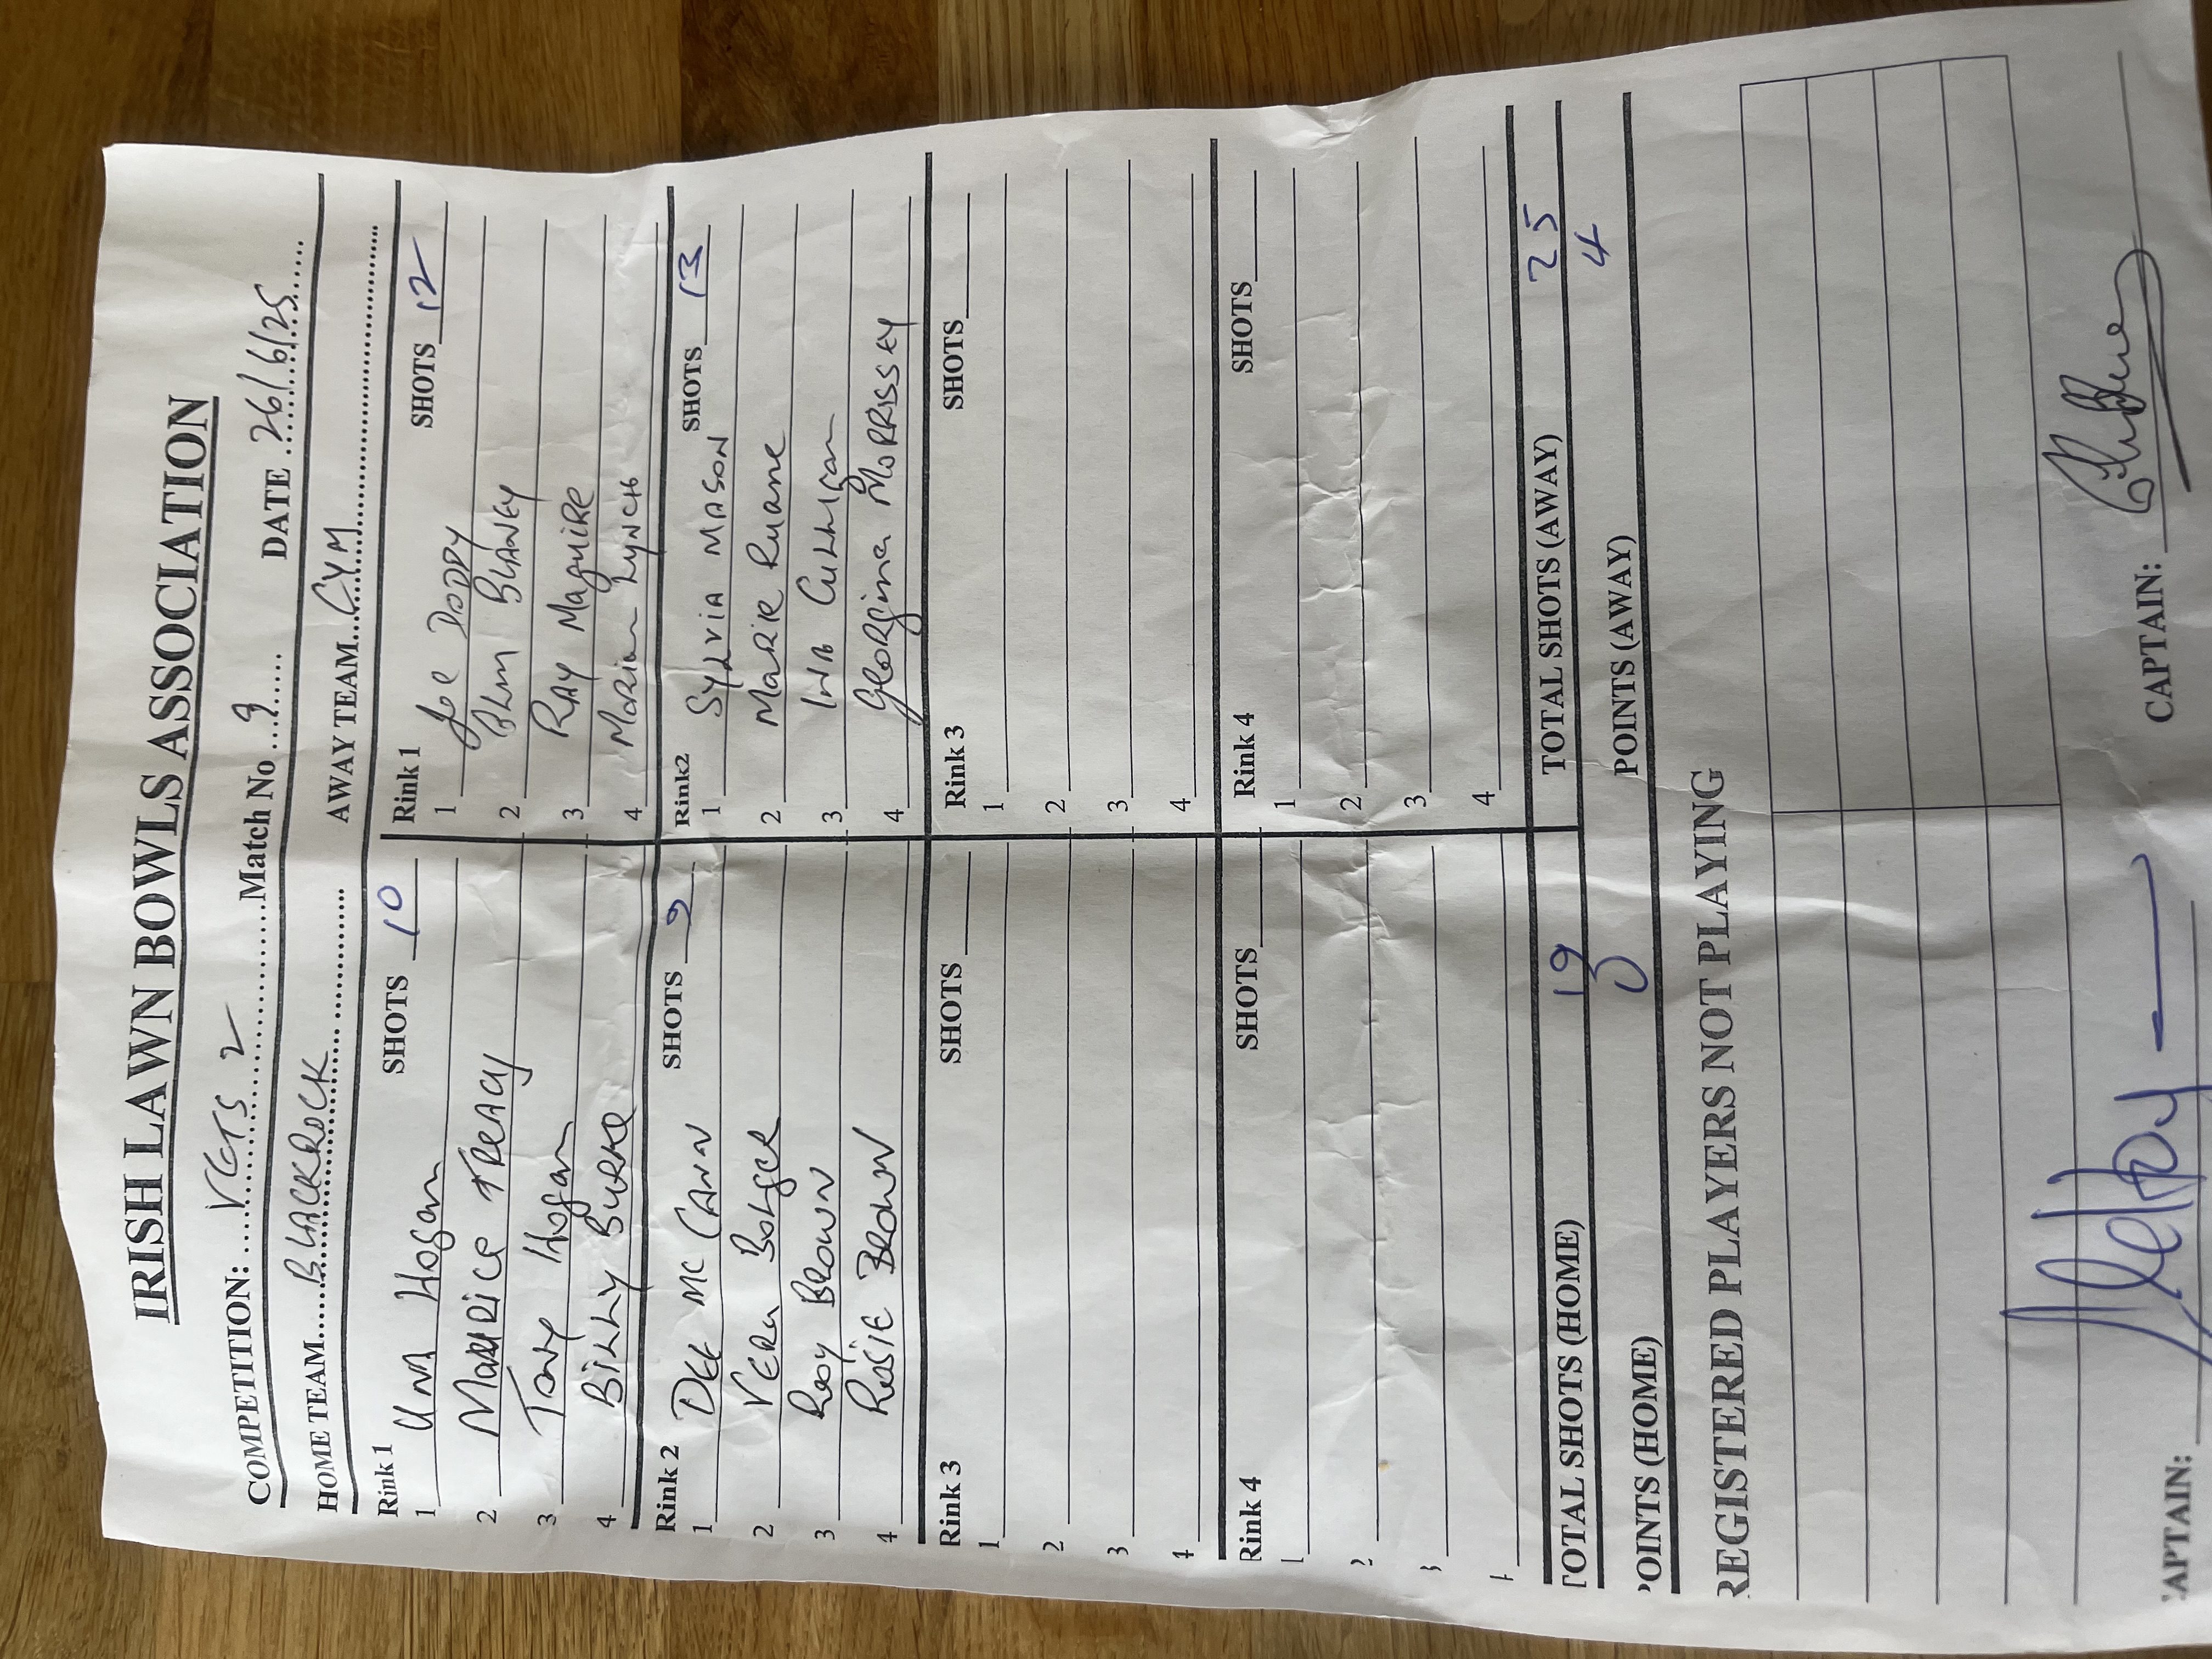 IRISH LAWN BOWLS ASSOCIATION
COMPETITION: VETS 2 Match No 9 DATE 26/6/25
HOME TEAM BLACKROCK AWAY TEAM CYM
Rink 1 SHOTS 10 Rink 1 SHOTS 12
1 Una Hogan 1 Joe DODDY
2 MAURICE TREACY 2 BLANEY
3 Tony Hogan 3 RAY MAGUIRE
4 BILLY BURKE 4 Marian LYNCH
Rink 2 SHOTS 9 Rink2 SHOTS 13
1 DEE MC CANN 1 SYLVIA MASON
2 VERA BOLGER 2 MARIE Ruane
3 Roy BROWN 3 INA CULLIGAN
4 ROSIE BROWN 4 Georgina MORRISSEY
Rink 3 SHOTS Rink 3 SHOTS
1 1
2 2
3 3
4 4
Rink 4 SHOTS Rink 4 SHOTS
1 1
2 2
3 3
4 4
TOTAL SHOTS (HOME) 19 TOTAL SHOTS (AWAY) 25
POINTS (HOME) 0 POINTS (AWAY) 4
REGISTERED PLAYERS NOT PLAYING
CAPTAIN: CAPTAIN: